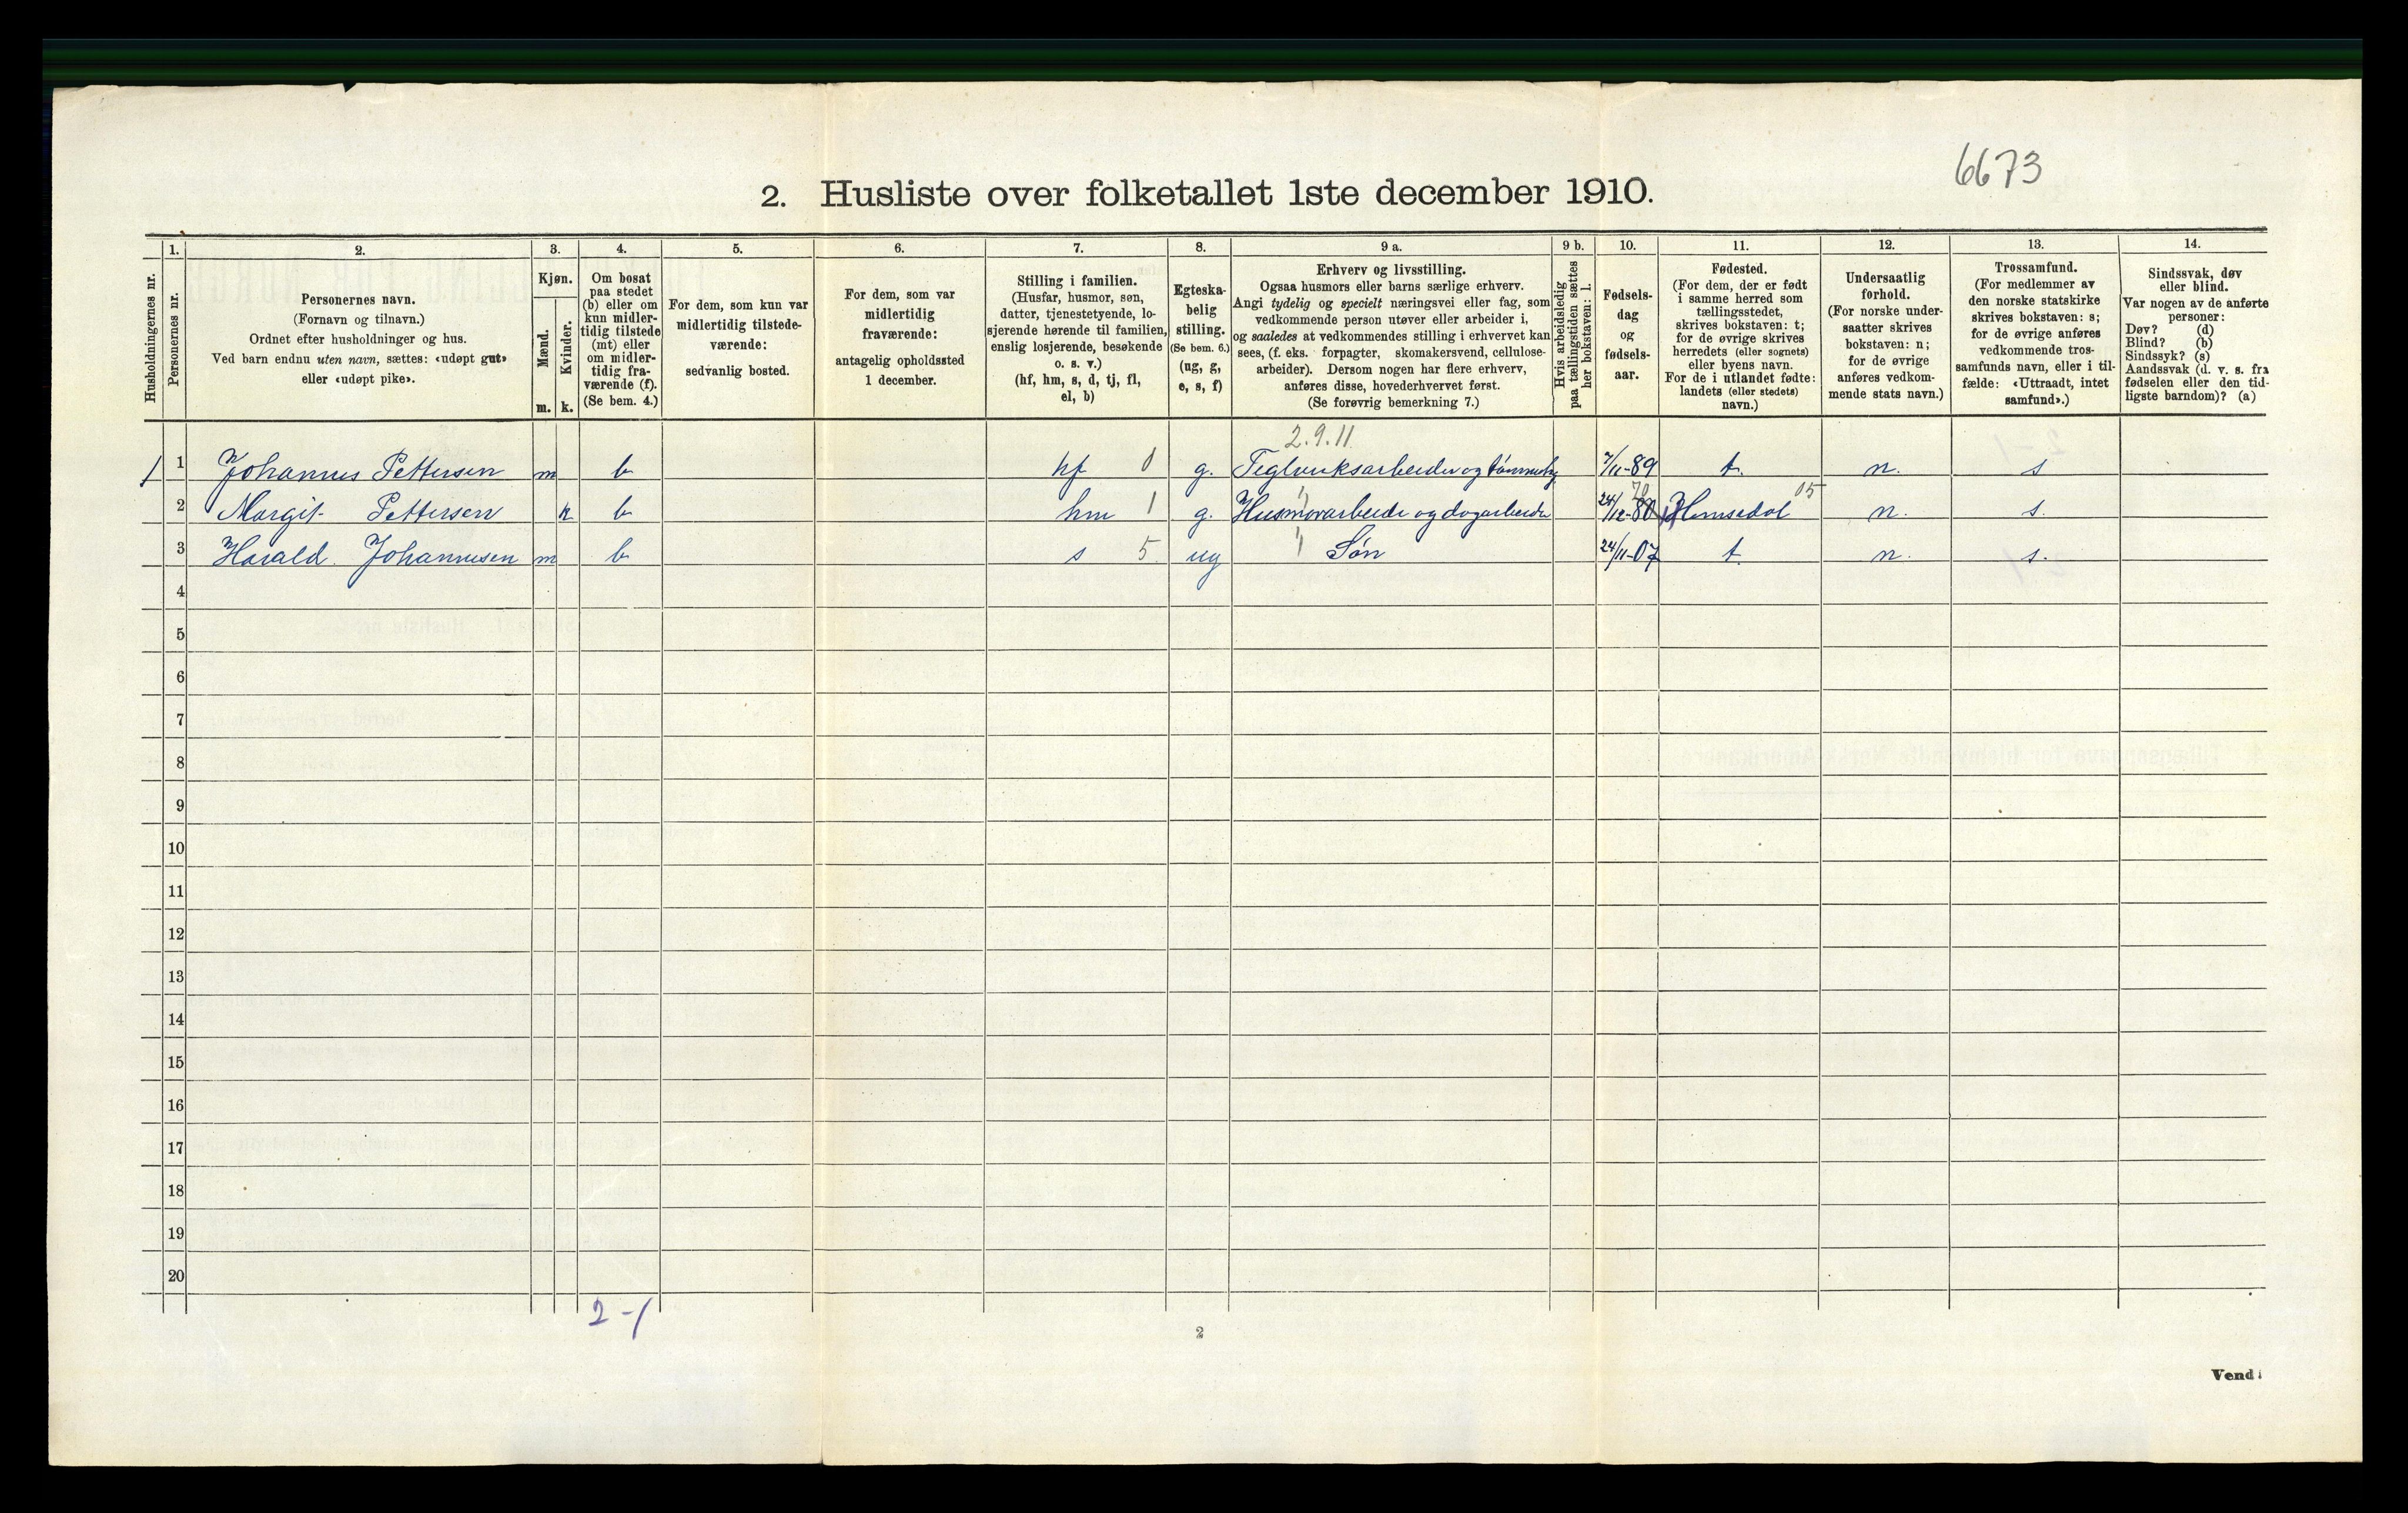 6673
2. Husliste over folketallet 1ste december 1910.
Husholdningernes nr.
1.
Personernes nr.
2.
Personernes navn.
(Fornavn og tilnavn.)
Ordnet efter husholdninger og hus.
Ved barn endnu uten navn, sættes: «udøpt gut»
eller «udøpt pike».
3.
Kjøn.
Mænd.
m.
Kvinder.
k.
4.
Om bosat
paa stedet
(b) eller om
kun midler-
tidig tilstede
(mt) eller
om midler-
tidig fra-
værende (f).
(Se bem. 4.)
5.
For dem, som kun var
midlertidig tilstede-
værende:
sedvanlig bosted.
6.
For dem, som var
midlertidig
fraværende:
antagelig opholdssted
1 december.
7.
Stilling i familien.
(Husfar, husmor, søn,
datter, tjenestetyende, lo-
sjerende hørende til familien,
enslig losjerende, besøkende
o. s. v.)
(hf, hm, s, d, tj, fl,
el, b)
8.
Egteska-
belig
stilling.
(Se bem. 6.)
(ug, g,
e, s, f)
9 a.
Erhverv og livsstilling.
Ogsaa husmors eller barns særlige erhverv.
Angi tydelig og specielt næringsvei eller fag, som
vedkommende person utøver eller arbeider i,
og saaledes at vedkommendes stilling i erhvervet kan
sees, (f. eks. forpagter, skomakersvend, cellulose-
arbeider). Dersom nogen har flere erhverv,
anføres disse, hovederhvervet først.
(Se forøvrig bemerkning 7.)
9 b.
Hvis arbeidsledig
paa tællingstiden sættes
her bokstaven: l.
10.
Fødsels-
dag
og
fødsels-
aar.
11.
Fødested.
(For dem, der er født
i samme herred som
tællingsstedet,
skrives bokstaven: t;
for de øvrige skrives
herredets (eller sognets)
eller byens navn.
For de i utlandet fødte:
landets (eller stedets)
navn.)
12.
Undersaatlig
forhold.
(For norske under-
saatter skrives
bokstaven: n;
for de øvrige
anføres vedkom-
mende stats navn.)
13.
Trossamfund.
(For medlemmer av
den norske statskirke
skrives bokstaven: s;
for de øvrige anføres
vedkommende tros-
samfunds navn, eller i til-
fælde: «Uttraadt, intet
samfund».)
14.
Sindssvak, døv
eller blind.
Var nogen av de anførte
personer:
Døv? (d)
Blind? (b)
Sindssyk? (s)
Aandssvak (d. v. s. fra
fødselen eller den tid-
ligste barndom)? (a)
2.9.11
1 1 Johannes Pettersen m b hf 0 g. Teglverksarbeider og 7/11-89 t. n. s
70 05
2 Margit Pettersen k b hm 1 g. Husmorarbeide og dagarbeide 24/12-80 Hemsedal n. s.
3 Harald Johannesen m b s 5 ug Søn 24/11-07 t. n. s.
4
5
6
7
8
9
10
11
12
13
14
15
16
17
18
19
20
2-1
2
Vend!